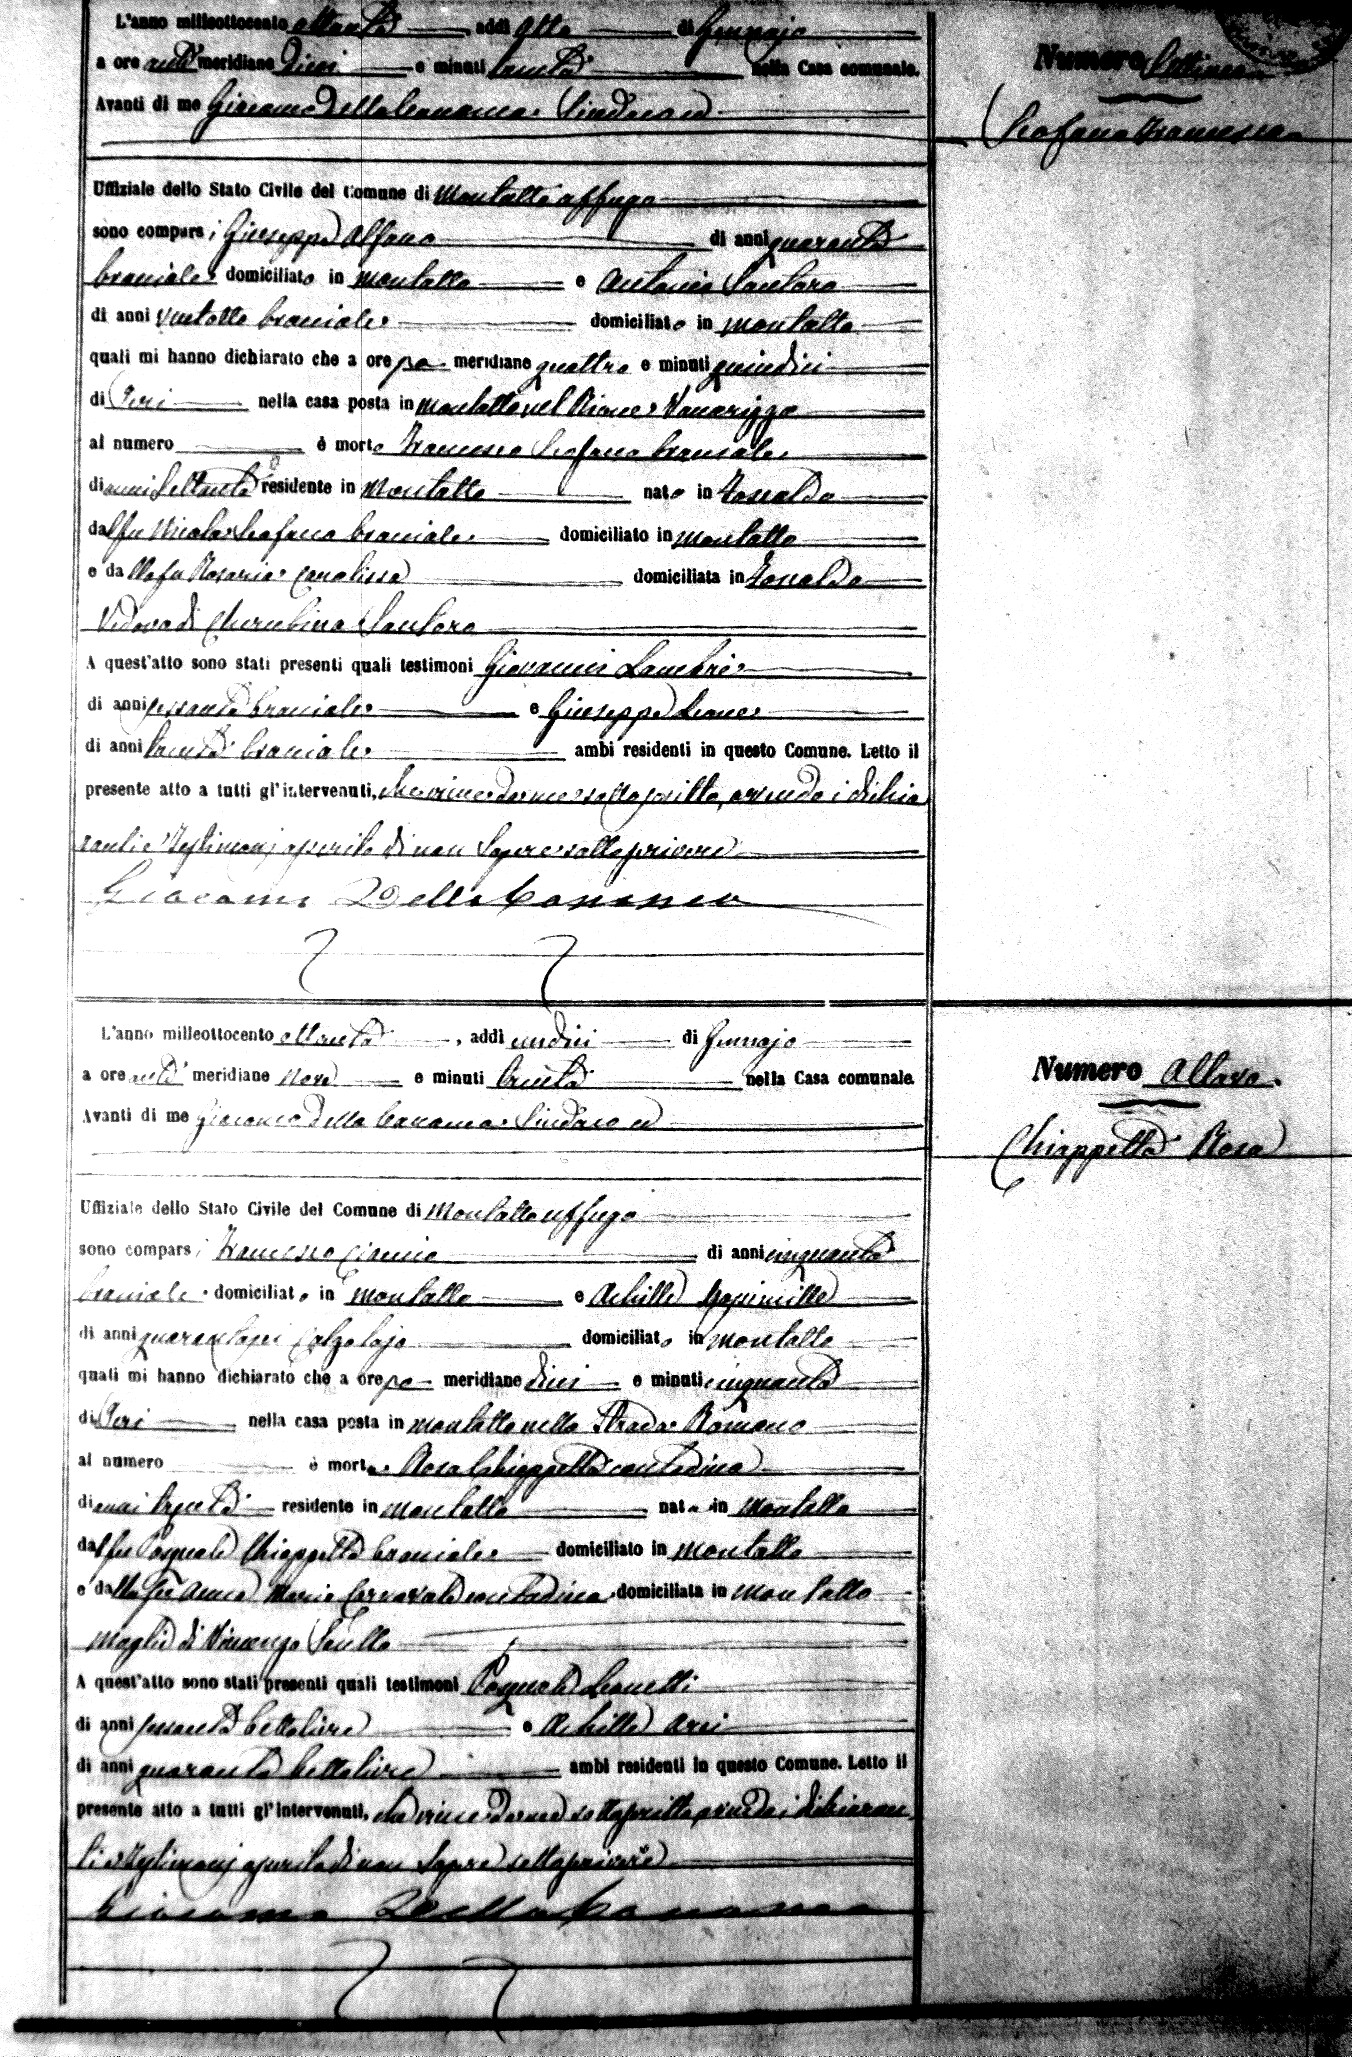 L'anno milleottocento ottanta, addì otto di Gennajo
a ore anti meridiane dieci e minuti trenta, nella Casa comunale.
Avanti di me Giacomo Della Cananea Sindaco ed
Numero Settimo
Scofano Francesco
Uffiziale dello Stato Civile del Comune di Montalto uffugo
sono comparsi Giuseppe Alfano di anni quaranta
bracciale domiciliato in Montalto e Antonio Santoro
di anni ventotto bracciale domiciliato in Montalto
quali mi hanno dichiarato che a ore po meridiane quattro e minuti quindici
di Ieri nella casa posta in Montalto nel Rione Vaccarizzo
al numero è morto Francesco Scofano bracciale
di anni Settanta residente in Montalto nato in
dal fu Nicola Scofano bracciale domiciliato in Montalto
e dalla fu Rosaria domiciliata in
Vedovo di Cherubina Santoro
A quest'atto sono stati presenti quali testimoni Giovanni
di anni sessanta bracciale e Giuseppe Leone
di anni trenta bracciale ambi residenti in questo Comune. Letto il
presente atto a tutti gl'intervenuti, che viene da me sottoscritto, avendo i dichia
ranti e Testimonj asserito di non Sapere sottoscrivere
Giacomo Della Cananea
L'anno milleottocento ottanta, addì undici di Gennajo
a ore anti meridiane nove e minuti trenta, nella Casa comunale.
Avanti di me Giacomo Della Cananea Sindaco ed
Numero Ottavo.
Chiappetta Rosa
Uffiziale dello Stato Civile del Comune di Montalto uffugo
sono comparsi Francesco Ciancio di anni cinquanta
bracciale domiciliato in Montalto e Achille
di anni quarantasei Calzolajo domiciliato in Montalto
quali mi hanno dichiarato che a ore po meridiane dieci e minuti cinquanta
di Ieri nella casa posta in Montalto nella Strada Romano
al numero è morta Rosa Chiappetta contadina
di anni trenta residente in Montalto nata in Montalto
dal fu Pasquale Chiappetta bracciale domiciliato in Montalto
e dalla fu Anna Maria Carnevale contadina domiciliata in Montalto
moglie di Vincenzo
A quest'atto sono stati presenti quali testimoni Pasquale
di anni sessanta bettoliere e Achille Arci
di anni quaranta bettoliere ambi residenti in questo Comune. Letto il
presente atto a tutti gl'intervenuti, che viene da me sottoscritto, avendo i dichiaran
ti e Testimonj asserito di non Sapere sottoscrivere
Giacomo Della Cananea